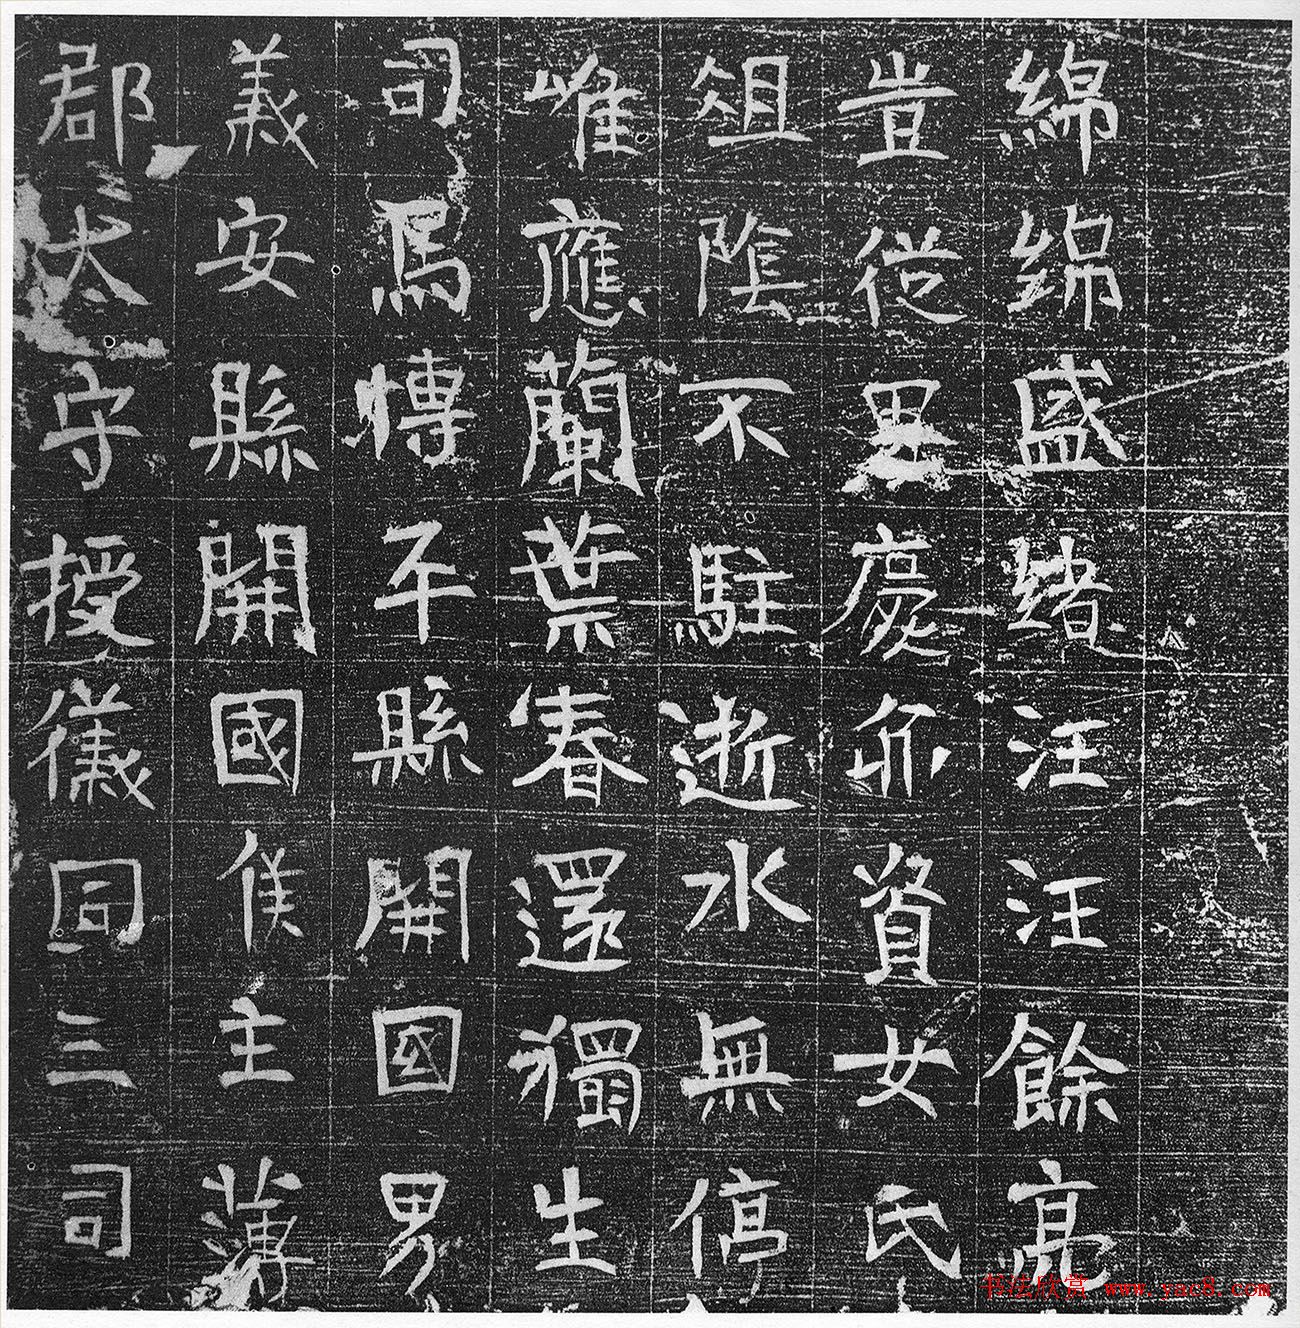 綿綿盛緒汪汪餘亮
豈從慶亦資女氏
俎陰不駐逝水無停
唯應蘭葉春還獨生
司馬愽午縣開國男
義安縣開國侯主薄
郡太守授儀同三司
书法欣赏 www.yac8.com